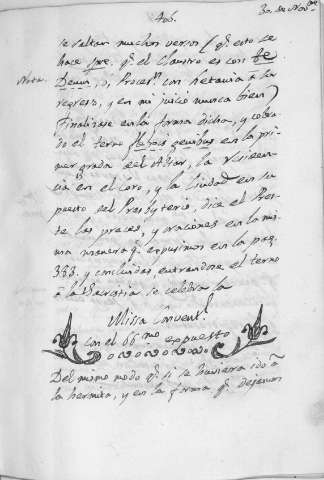 406.
30 de Nov.bre
se saltan muchos versos (q.e esto se
hace spre. q.e el Claustro es con Te
Nota.
Deum,), Proces.n con letania a la
regreso, y en mi juicio nunca bien)
Finalizase en la forma dicha, y
do el terno flexis genibus en la pri-
mer grada del Altar, la
cia en el Coro, y la Ciudad en su
puesto del Presbyterio, dice el Pres-
te las preces, y oraciones en la mis-
ma manera q.e expusimos en la pag.
338. y concluidas, entrandose el terno
â la Sacristia se celebra la
Missa Convent.l
con el SS.mo expuesto
Del mismo modo q.e si se huviera ido â
la hermita, y en la forma q.e dejamos